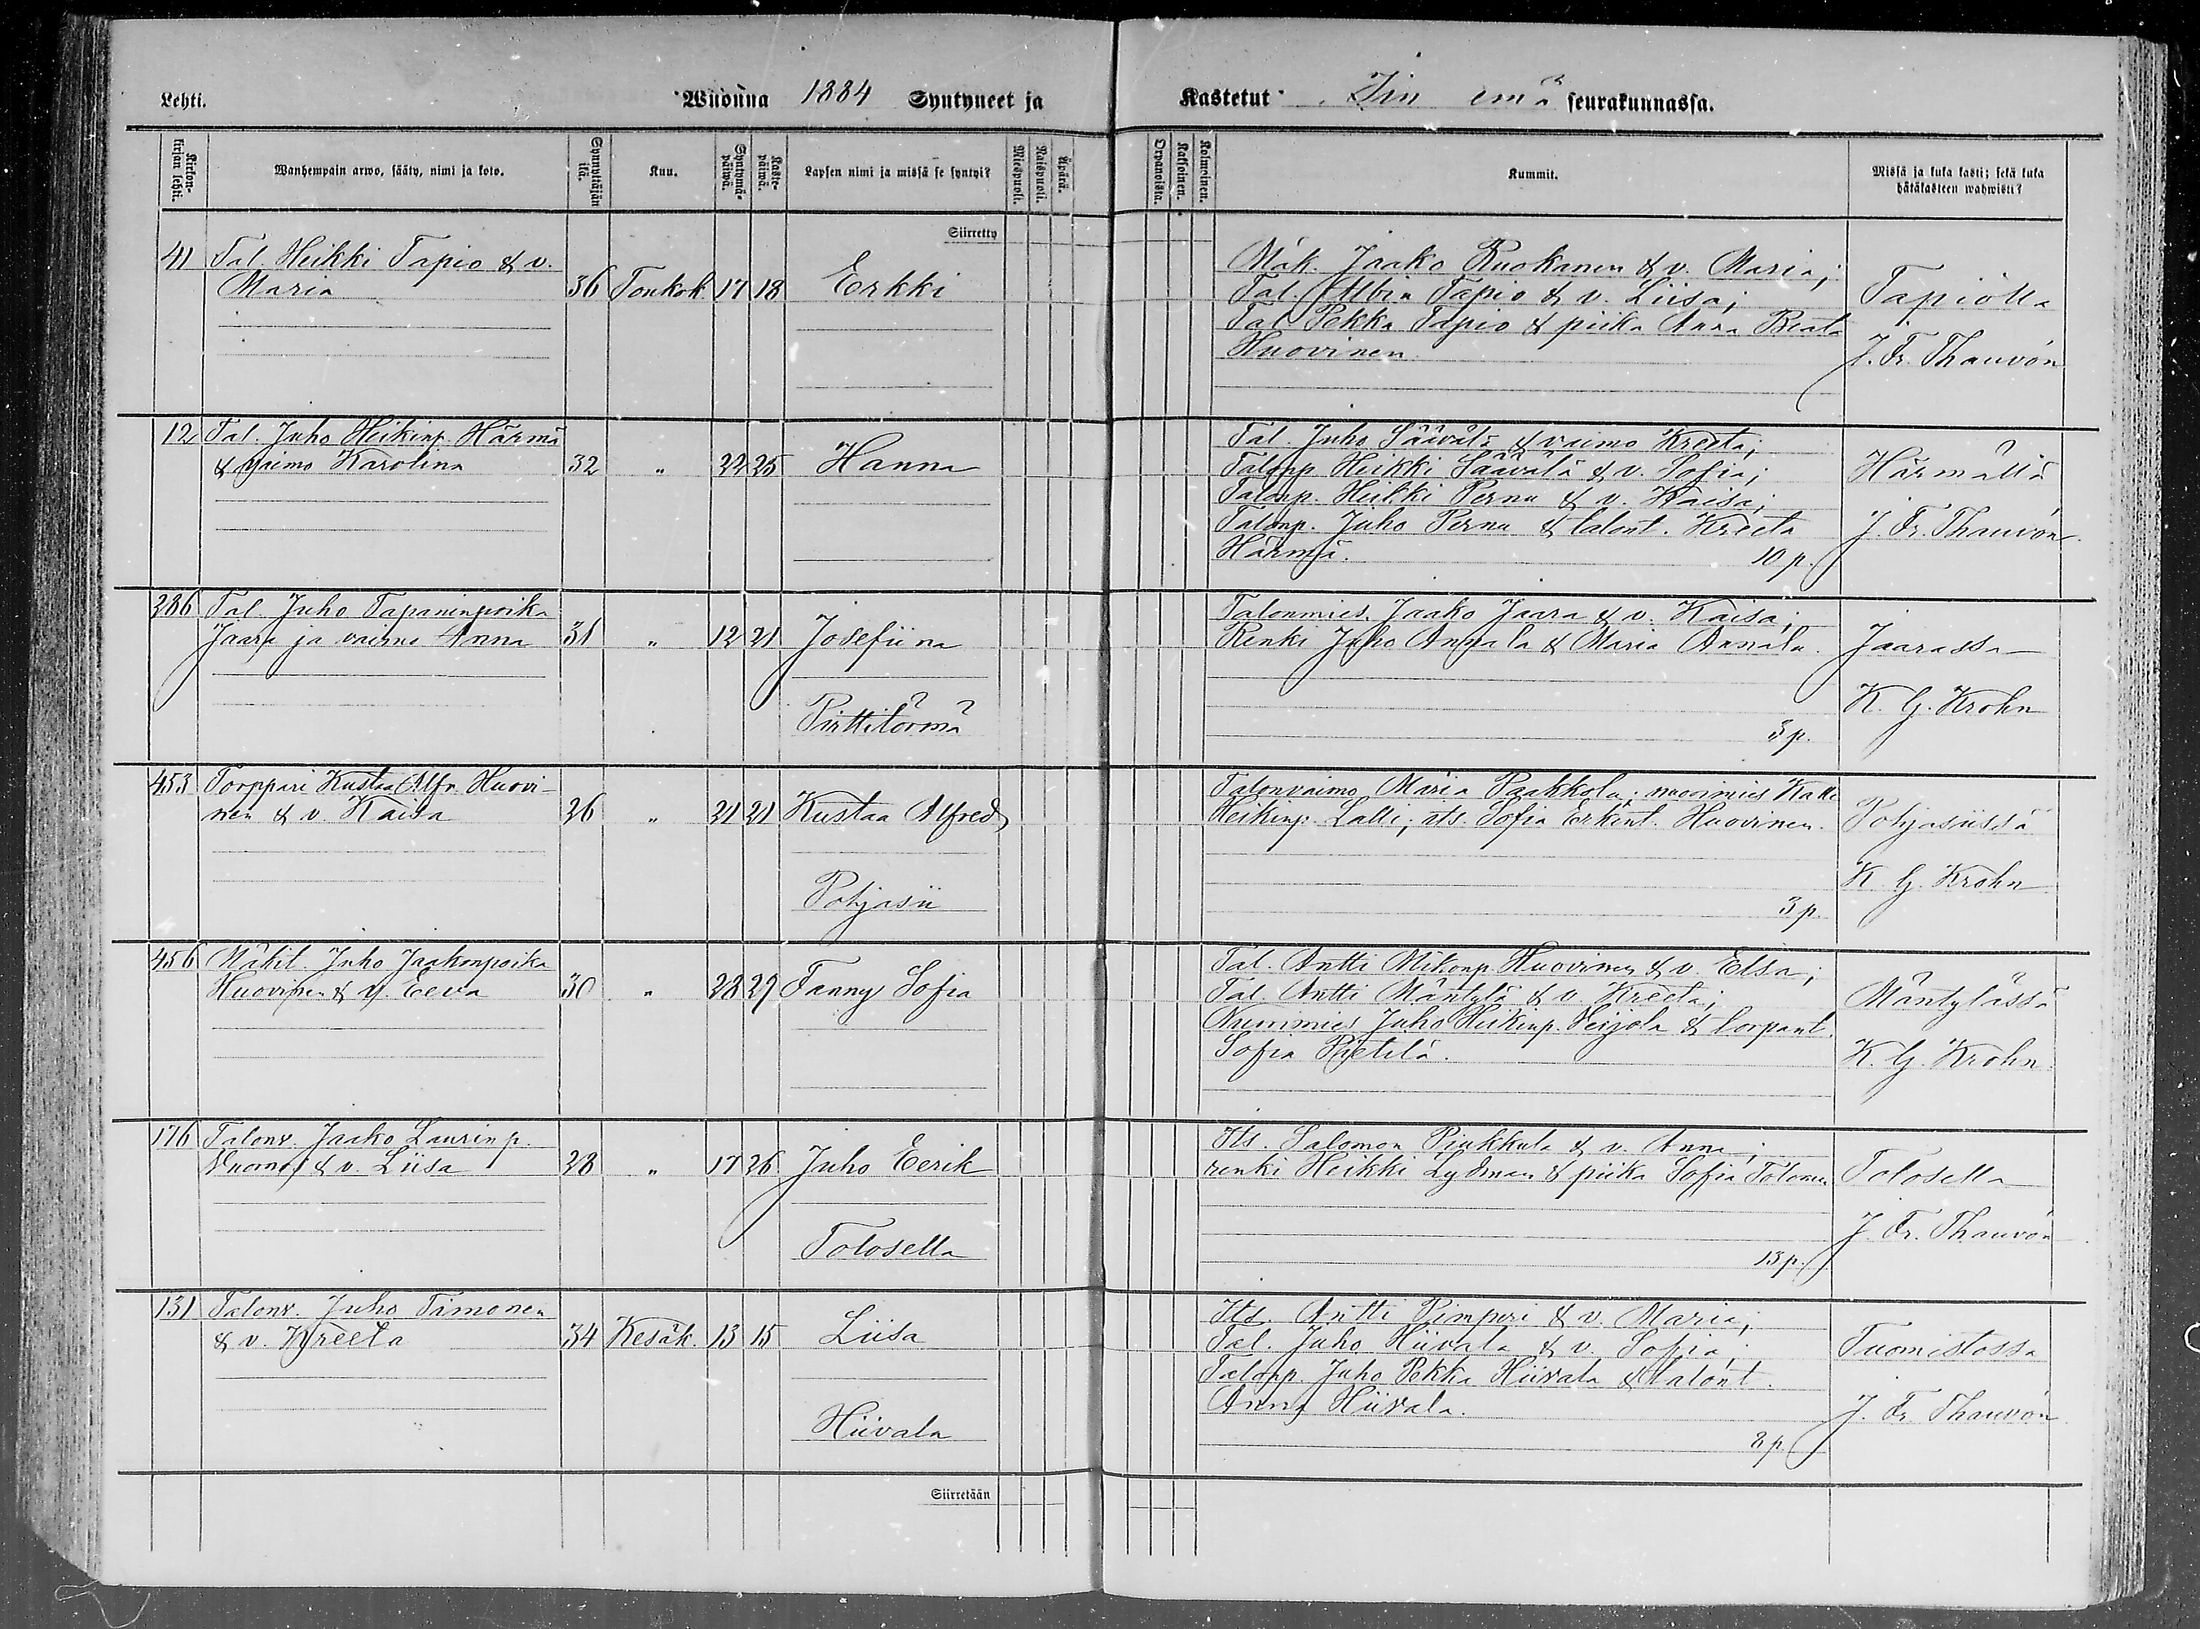 Lehti. Wuonna 1884 Syntyneet ja Kastetut Iin emä seurakunnassa.
Kirkonkirjan lehti. Wanhempain arwo, sääty, nimi ja koto. Synnyttäjän ikä. Kuu. Syntymäpäiwä. Kastepäiwä. Lapsen nimi ja missä se syntyi? Miespuoli. Naispuoli. Äpärä. Orpanoista. Kaksoinen. Kolmoinen. Kummit. Missä ja kuka kasti; sekä kuka hätäkasteen wahwisti?
Siirretty
41 Tal. Heikki Tapio & v.
Maria 36 Toukok. 17 18 Erkki
Mäk. Jaako Ruokanen & v. Maria;
Tal. Albin Tapio & v. Liisa;
Tal. Pekka Tapio & piika Anna Beata
Huovinen
Tapiolla
J. Fr. Thauvón
12 Tal. Juho Heikinp. Härmä
& vaimo Karolina 32 " 22 25 Hanna
Tal. Juho Säävälä & vaimo Kreeta;
Talonp. Heikki Säävälä & v. Sofia;
Talonp. Heikki Pernu & v. Kaisa;
Talonp. Juho Pernu & talont. Kreeta
Härmä. 10 p.
Härmällä
J. Fr. Thauvón.
386 Tal. Juho Tapaninpoika
Jaara ja vaimo Anna 31 " 12 21 Josefiina
Pirttitörmä
Talonmies Jaako Jaara & v. Kaisa;
Renki Juho Annala & Maria Annala.
3 p.
Jaarassa
K. G. Krohn
453 Torppari Kustaa Alfr. Huovi-
nen & v. Kaisa 26 " 21 21 Kustaa Alfred
Pohjasii
Talonvaimo Maria Paakkola; nuorimies Kalle
Heikinp. Lalli; its. Sofia Erkint. Huovinen.
3 p.
Pohjasiissä
K. G. Krohn
456 Mäkit. Juho Jaakonpoika
Huovinen & v. Eeva 30 " 28 29 Fanny Sofia
Tal. Antti Mikonp. Huovinen & v. Elsa;
Tal. Antti Mäntylä & v. Kreeta;
Nuorimies Juho Heikinp. Veijola & torpant.
Sofia Paetilä.
Mäntylässä
K. G. Krohn.
176 Talonv. Jaako Laurinp.
Vuornos & v. Liisa 28 " 17 26 Juho Eerik
Tolosella
Its. Salomon Piukkula & v. Anna;
renki Heikki Lydman & piika Sofia Tolonen
13 p.
Tolosella
J. Fr. Thauvón
131 Talonv. Juho Timonen
& v. Kreeta 34 Kesäk. 13 15 Liisa
Hiivala
Its. Antti Pimperi & v. Maria;
Tal. Juho Hiivala & v. Sofia;
Talonp. Juho Pekka Hiivala & talont.
Anna Hiivala.
8 p.
Tuomistossa
J. Fr. Thauvón
Siirretään